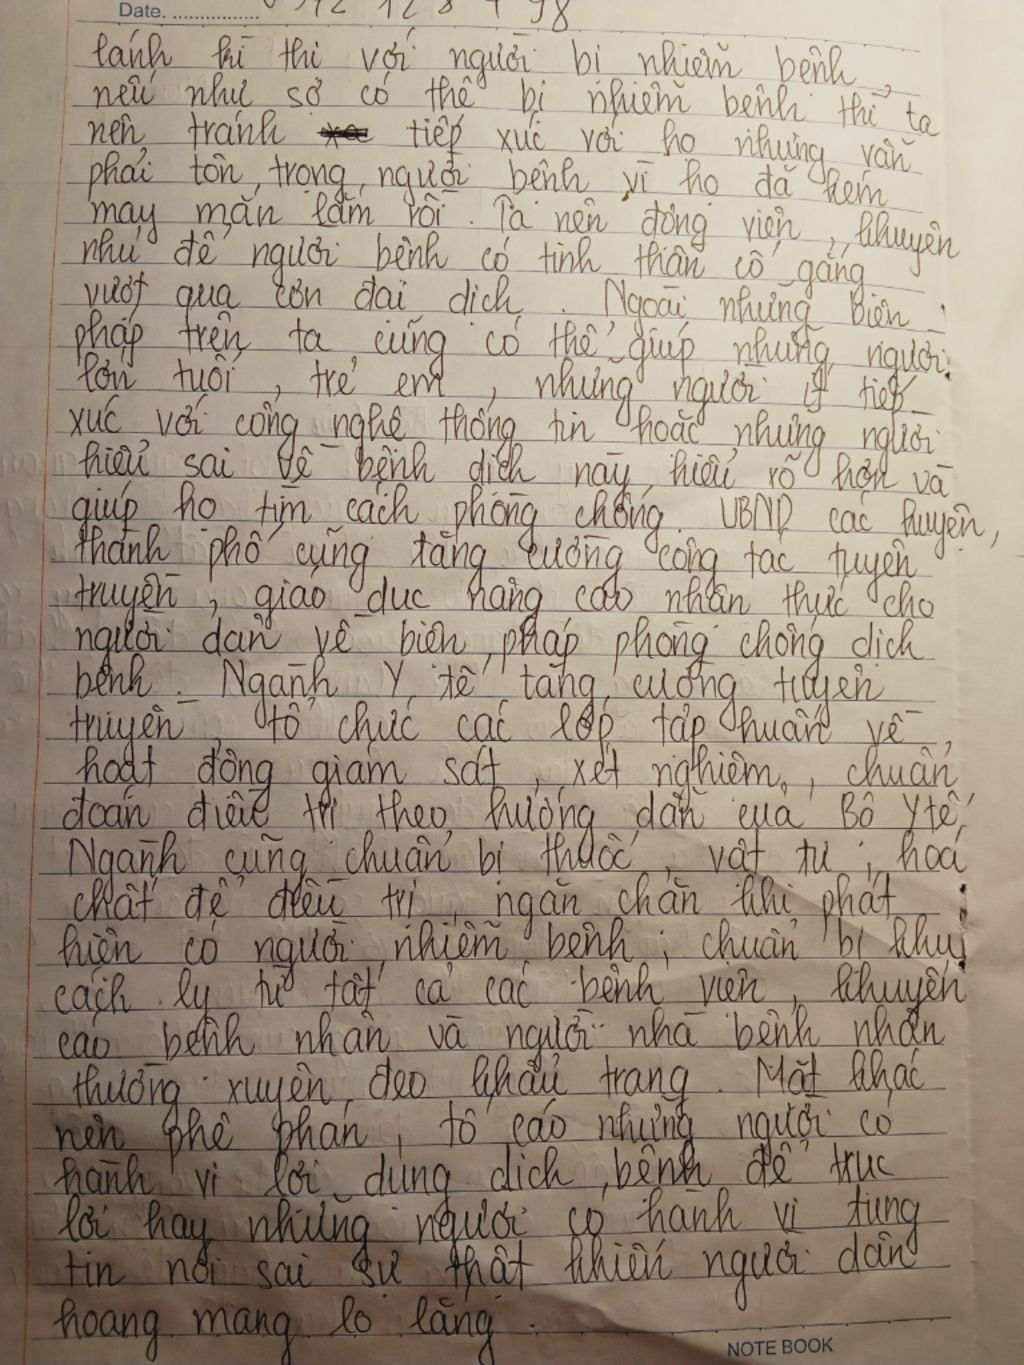 Date.
lánh kì thi với người bị nhiễm bệnh,
nếu như sợ có thể bị nhiễm bệnh thì ta
nên tránh tiếp xúc với họ nhưng vẫn
phải tôn trọng người bệnh vì họ đã kém
may mắn lắm rồi. Ta nên động viên, khuyên
nhủ để người bệnh có tinh thần cố gắng
vượt qua cơn đại dịch. Ngoài những biện
pháp trên ta cũng có thể giúp những người
lớn tuổi, trẻ em, những người ít tiếp
xúc với công nghệ thông tin hoặc những người
hiểu sai về bệnh dịch này hiểu rõ hơn và
giúp họ tìm cách phòng chống. UBND các huyện,
thành phố cũng tăng cường công tác tuyên
truyền, giáo dục nâng cao nhận thức cho
người dân về biện pháp phòng chống dịch
bệnh. Ngành Y tế tăng cường tuyên
truyền, tổ chức các lớp tập huấn về
hoạt động giám sát, xét nghiệm, chuẩn
đoán điều trị theo hướng dẫn của Bộ Y tế,
Ngành cũng chuẩn bị thuốc, vật tư, hoá
chất để điều trị, ngăn chặn khi phát
hiện có người nhiễm bệnh; chuẩn bị khu
cách ly từ tất cả các bệnh viện, khuyến
cáo bệnh nhân và người nhà bệnh nhân
thường xuyên đeo khẩu trang. Mặt khác
nên phê phán, tố cáo những người có
hành vi lợi dụng dịch bệnh để trục
lợi hay những người có hành vi tung
tin nói sai sự thật khiến người dân
hoang mang lo lắng.
NOTE BOOK